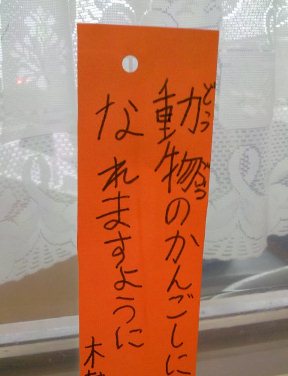 動物のかんごしに
なれますように
どうぶつ
木